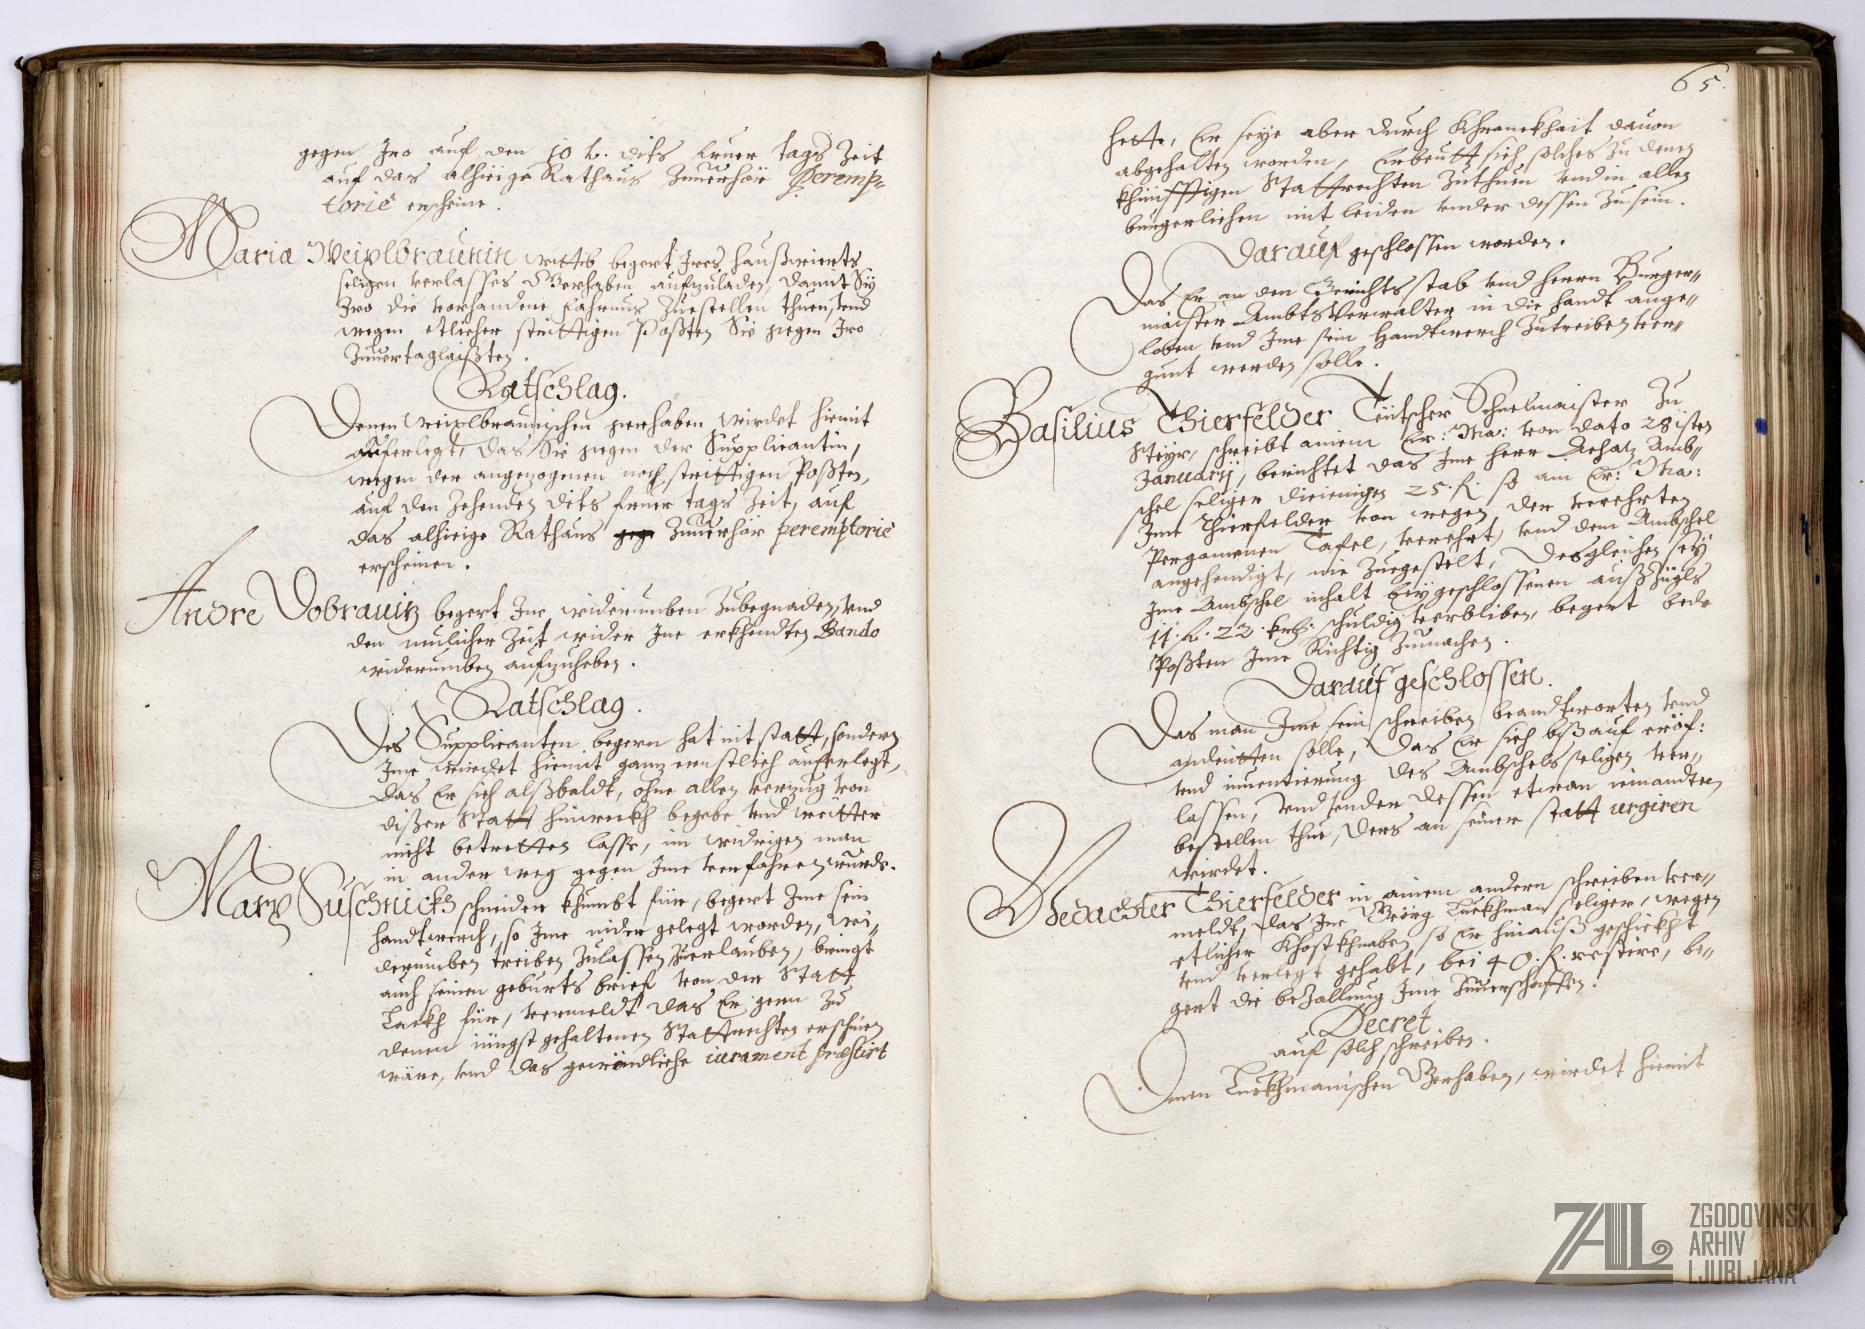 gegen Iro auf den 10 t. dits fruer tags Zeit
auf das alhieige Rathaus Zuuerhör Peremp=
toriè erscheine.
Maria Weixlbraunin wittib begert Ires haußwierts
seligen verlasses Gerhaben aufzuladen, damit Sÿ
Iro die vorhandene fahrnus Zuestellen thuen, vnd
wegen etlicher strittigen Poßten Sie gegen Iro
Zuuertaglaißten.
Ratschlag.
Denen Weixlbraunischen gerhaben wirdet hiemit
auferlegt, das Sie gegen der Supplicantin,
wegen der angezogenen noch strittigen Poßten,
auf den Zehenden dits fruer tags Zeit, auf
das alhieige Rathaus Zuuerhör peremptoriè
erscheinen.
Andre Dobrauiz begert Ine widerumben Zubegnaden, vnd
den neulicher Zeit wider Ine erkhendten Bando
widerumben aufzuheben.
Ratschlag.
Des Supplicanten begern hat nit statt, sondern
Ime wirdet hiemit ganz ernstlich auferlegt,
das Er sich alßbaldt, ohne allen verzug von
diser Statt hinwekh begebe vnd weitter
nicht betretten lasse, im widrigen man
in ander weg gegen Ime verfahren wurde.
Marx Suschnickh schneider khumbt für, begert Ime sein
handtwerch, so Ime nider gelegt worden, wi=
derumben treiben Zulassen Zuerlauben, bringt
auch seinen geburts brief von der Statt
Lackh für, vermeldt das Er gern Zu
denen iüngst gehaltenen Stattrechten erschinen
wäre, vnd das gewöndliche iurament præstirt
65.
hette, Er seÿe aber durch Khranckhait dauon
abgehalten worden, Erbeutt sich solches Zu denen
khünfftigen Stattrechten Zuthuen vnd in allen
burgerlichen mit leiden vnder dessen Zu sein.
Darauf geschlossen worden.
Das Er an den Gerichts stab vnd herrn Burger=
maister Ambts Verwalter in die handt ange=
loben vnd Ime sein Handtwerch Zutreiben ver=
gunt werden solle.
Basilius Thierfelder Teütscher Schuelmaister Zu
Steÿr, schreibt ainem Er: Ma: von dato 28isten
Januarij, berichtet das Ime herr Achatz Amb=
schel seliger dieienigen 25. f. so ain Er: Ma:
Ime Thierfelder von wegen der verehrten
Pergamenen Tafel, verehrt, vnd dem Ambschel
angehendigt, nie Zuegestelt, desgleichen seÿ
Ime Ambschel inhalt beÿgeschlossenen außzugls
11. f. 22. khr. schuldig verbliben, begert bede
Poßten Ime Richtig Zumachen.
Darauf geschlossen.
Das man Ime sein schreiben beandtworten vnd
andeütten solle, das Er sich biß auf eröf:
vnd inuentierung des Ambschels seligen ver=
lassen, vnd vnder dessen etwan iemandten
bestellen thue, ders an seiner statt urgiren
wirdet.
Gedachter Thierfelder in ainem andern schreiben ver=
meldt, das Ime Georg Luckhman seliger, wegen
etlicher Khostkhnaben so Er hinauß geschickht
vnd verlegt gehabt, bei 40. f. restire, be=
gert die beZallung Ime Zuuerschaffen.
Decret
auf solch schreiben.
Denen Luckhmanischen Gerhaben, wirdet hiemit
ZAL
ZGODOVINSKI
ARHIV
LJUBLJANA